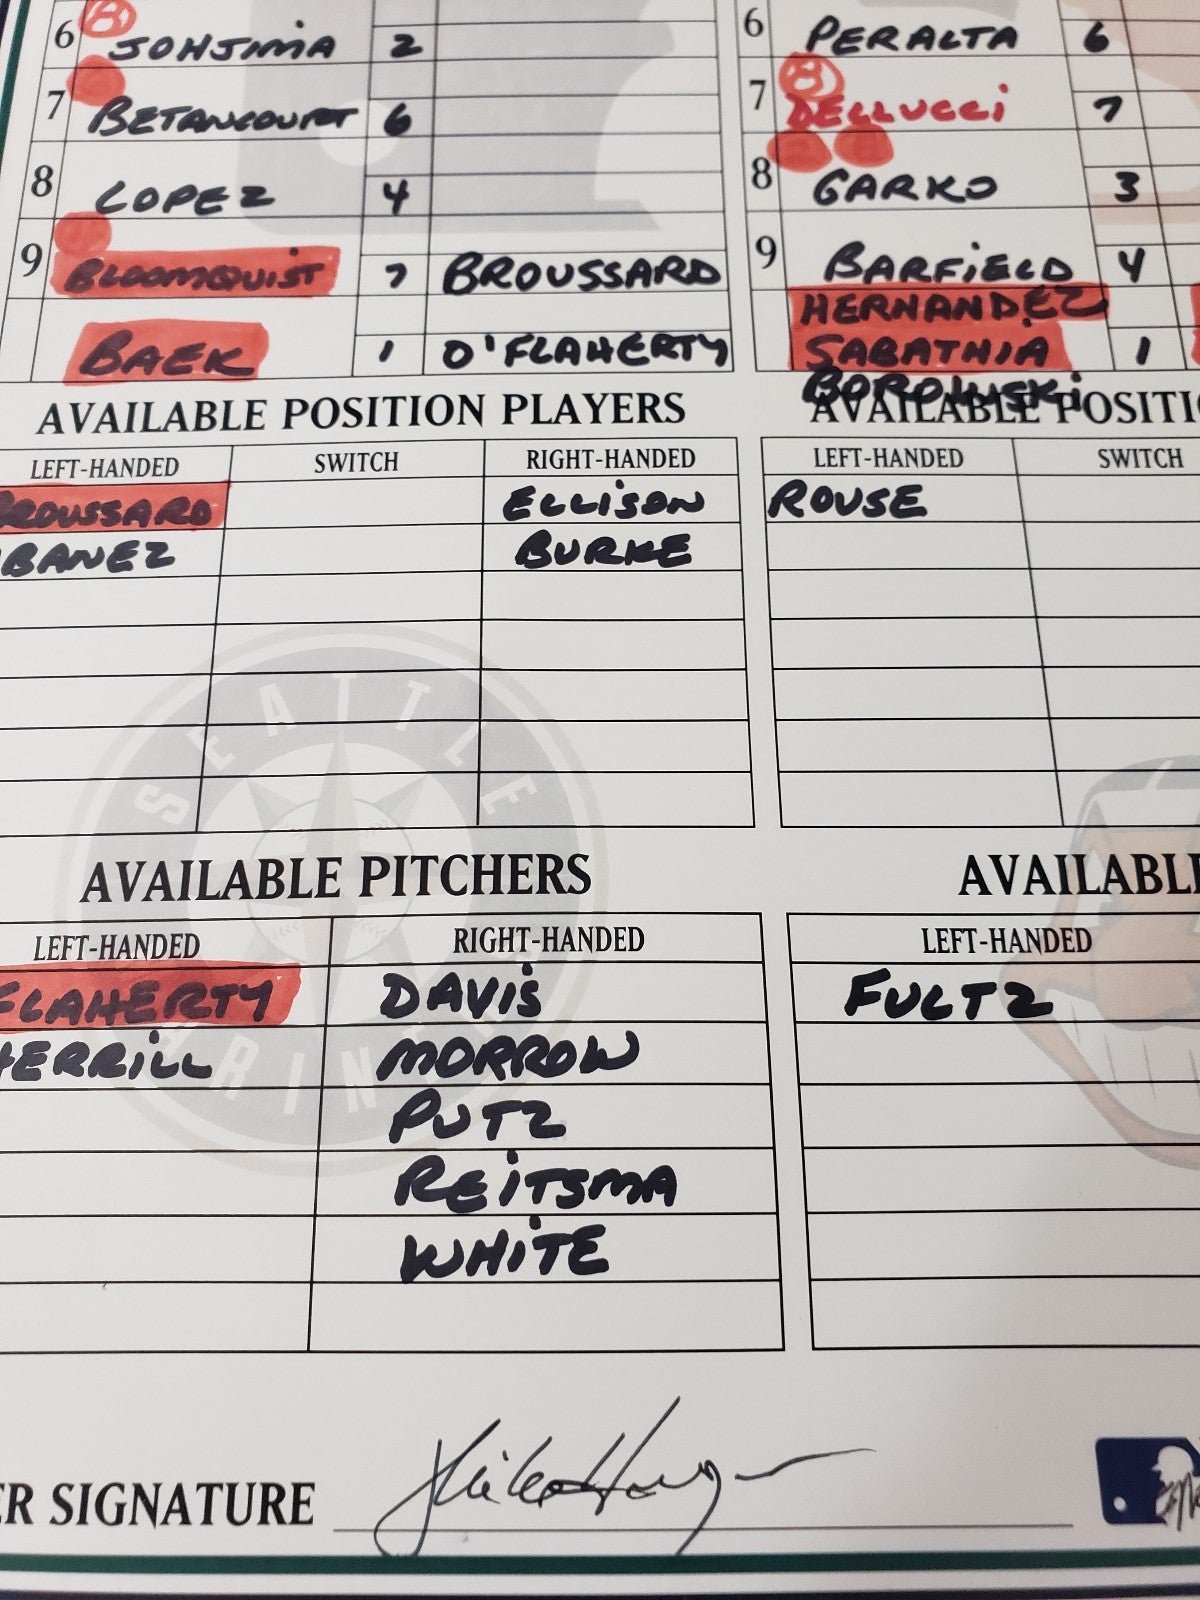 6 JOHJIMA 2
7 BETANCOURT 6
8 LOPEZ 4
9 BLOOMQUIST 7 BROUSSARD
BAEK 1 O'FLAHERTY
AVAILABLE POSITION PLAYERS
LEFT-HANDED SWITCH RIGHT-HANDED
ROUSSARD ELLISON
BANEZ BURKE
SEATTLE
MARINERS
AVAILABLE PITCHERS
LEFT-HANDED RIGHT-HANDED
FLAHERTY DAVIS
HERRILL MORROW
PUTZ
REITSMA
WHITE
6 PERALTA 6
7 DELLUCCI 7
8 GARKO 3
9 BARFIELD 4
HERNANDEZ
SABATHIA 1
BOROWSKI
AVAILABLE POSITI
LEFT-HANDED SWITCH
ROUSE
AVAILABL
LEFT-HANDED
FULTZ
ER SIGNATURE